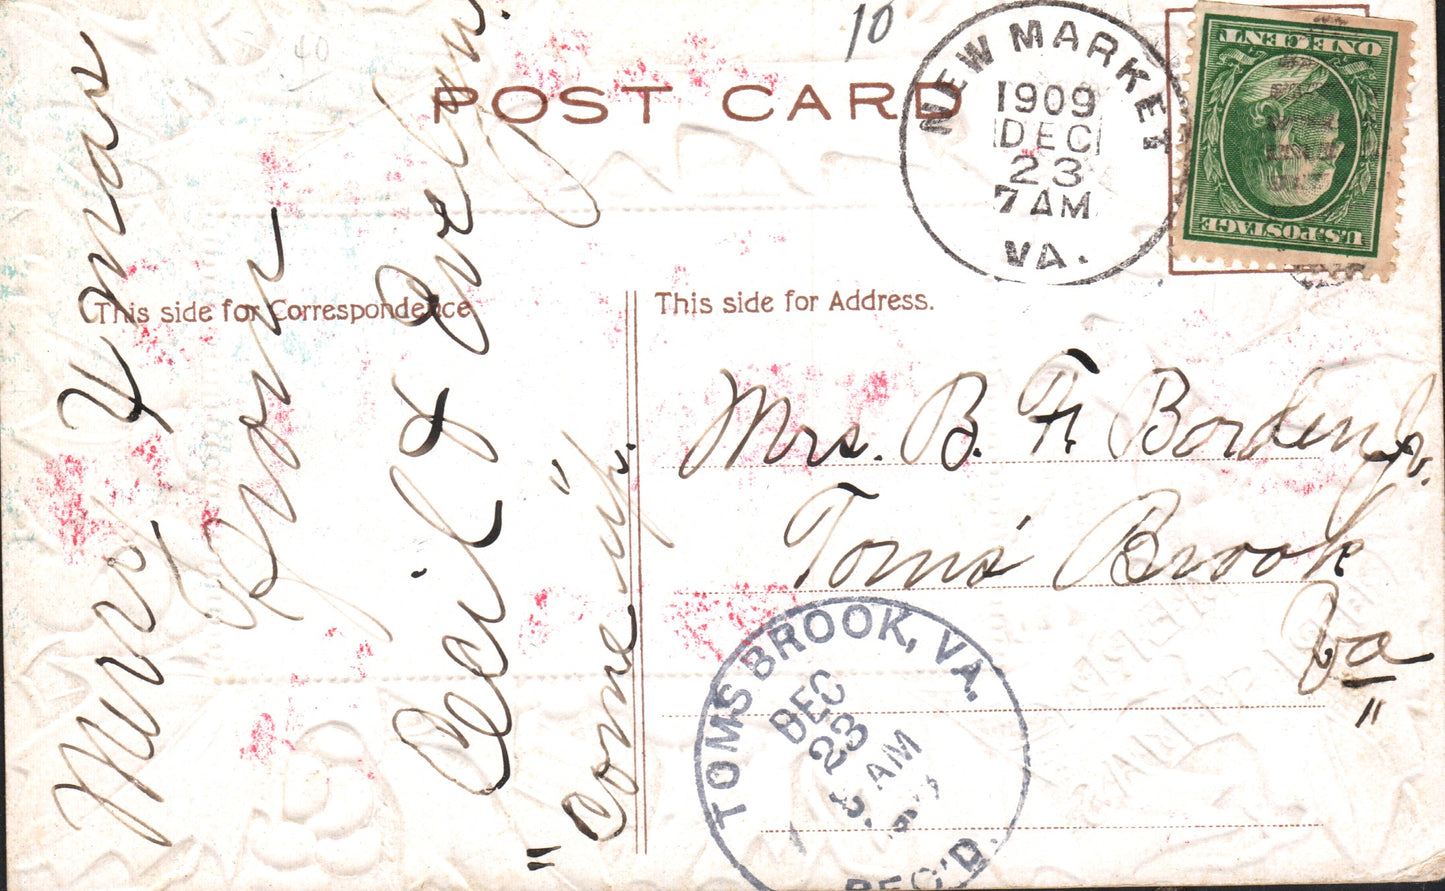 10
40
POST CARD
NEW MARKET
1909
DEC
23
7 AM
VA.
ONE CENT
U.S. POSTAGE
This side for Correspondence
This side for Address.
Merry Xmas
From
Cecil & Evelyn.
"Come up".
Mrs. B. F. Borden Jr.
Toms' Brook
Va"
TOMS BROOK, VA.
DEC
23
AM
REC'D.